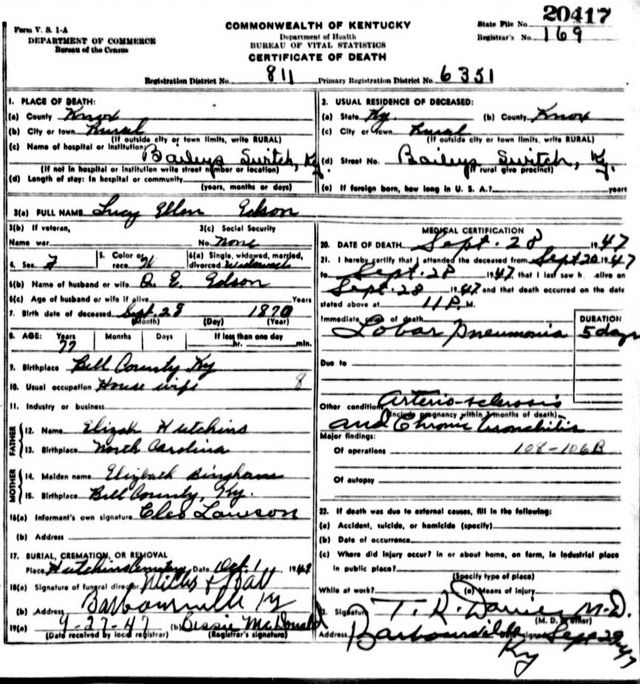 Form V. S. 1-A
DEPARTMENT OF COMMERCE
Bureau of the Census
COMMONWEALTH OF KENTUCKY
Department of Health
BUREAU OF VITAL STATISTICS
CERTIFICATE OF DEATH
State File No. 20417
Registrar's No. 169
Registration District No. 811 Primary Registration District No. 6351
1. PLACE OF DEATH:
(a) County Knox
(b) City or town Rural
(If outside city or town limits, write RURAL)
(c) Name of hospital or institution:
Baileys Switch, Ky.
(If not in hospital or institution write street number or location)
(d) Length of stay: In hospital or community
(years, months or days)
2. USUAL RESIDENCE OF DECEASED:
(a) State Ky. (b) County Knox
(c) City or town Rural
(If outside city or town limits, write RURAL)
(d) Street No. Baileys Switch, Ky.
(If rural give precinct)
(e) If foreign born, how long in U. S. A.? years
3(a) FULL NAME Lucy Ellen Edson
3(b) If veteran,
Name war
3(c) Social Security
No. None
4. Sex F
5. Color or race W
6(a) Single, widowed, married, divorced Widowed
6(b) Name of husband or wife O. E. Edson
6(c) Age of husband or wife if alive Years
7. Birth date of deceased Sept. 28 1870
(Month) (Day) (Year)
8. AGE: Years 77 Months Days If less than one day hr. min.
9. Birthplace Bell County Ky
10. Usual occupation House wife 8
11. Industry or business
FATHER
12. Name Elizah Hutchins
13. Birthplace North Carolina
MOTHER
14. Maiden name Elizbath Bingham
15. Birthplace Bell County, Ky.
16(a) Informant's own signature Cleo Lawson
(b) Address
17. BURIAL, CREMATION, OR REMOVAL
Place Hutchins Date Oct. 1
18(a) Signature of funeral director
(b) Address Barbourville Ky
19(a) 9-27-47 (b) Bessie McDonald
(Date received by local registrar) (Registrar's signature)
MEDICAL CERTIFICATION
20. DATE OF DEATH Sept. 28 1947
21. I hereby certify that I attended the deceased from Sept 20 1947
to Sept. 28 1947 that I last saw h alive on
Sept. 28 1947 and that death occurred on the date
stated above at 11 P. M.
Immediate cause of death
Lobar Pneumonia
DURATION
5 days
Due to
Other conditions Arterio-sclerosis
(Include pregnancy within 3 months of death)
and Chronic Bronchitis
Major findings:
Of operations 108-106B
Of autopsy
22. If death was due to external causes, fill in the following:
(a) Accident, suicide, or homicide (specify)
(b) Date of occurrence
(c) Where did injury occur? in or about home, on farm, in industrial place
in public place?
(Specify type of place)
While at work? (e) Means of injury
Signature T. R. Davies M. D.
(M. D. or other)
Address Barbourville Date signed Sept 29 47
Ky